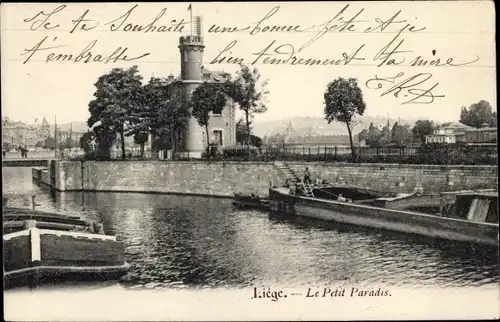 Je te Souhaite une bonne fête Et je
t'embrasse bien tendrement ta mère
Liége. — Le Petit Paradis.